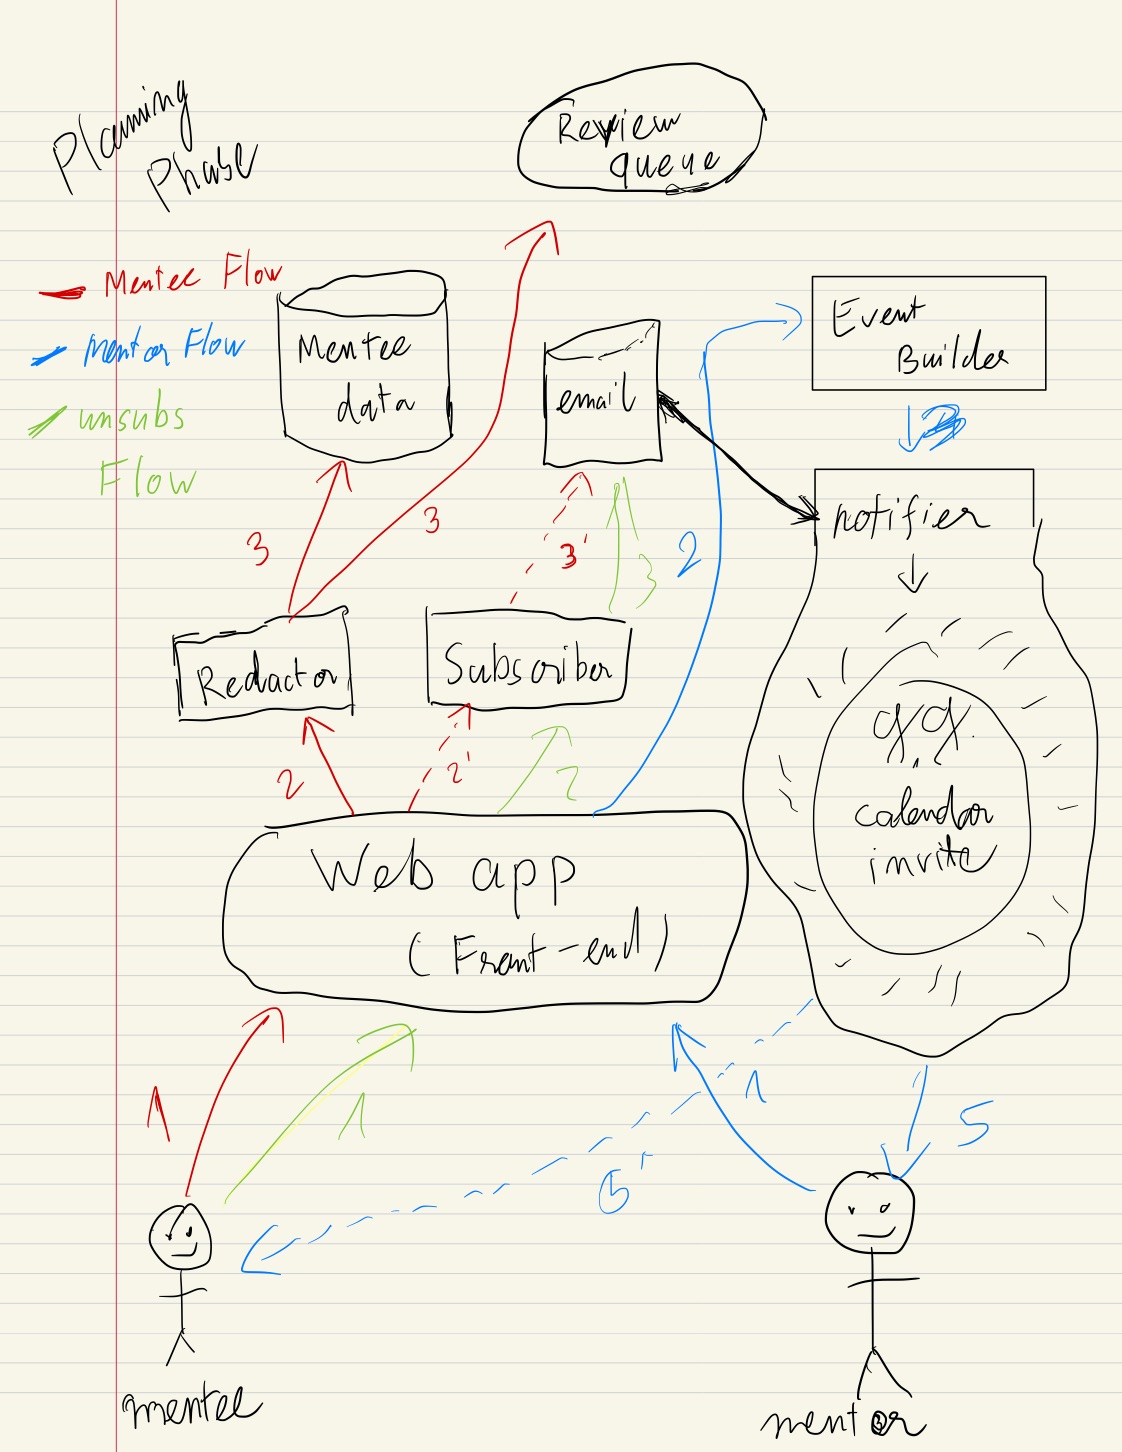 Planning
Phase
Mentee Flow
Mentor Flow
unsubs
Flow
Review
queue
Mentee
data
email
Event
Builder
notifier
3
3
3'
3
2
Redactor
Subscriber
2
2'
2
calendar
invite
Web app
(Front-end)
1
1
1
5
5'
mentee
mentor